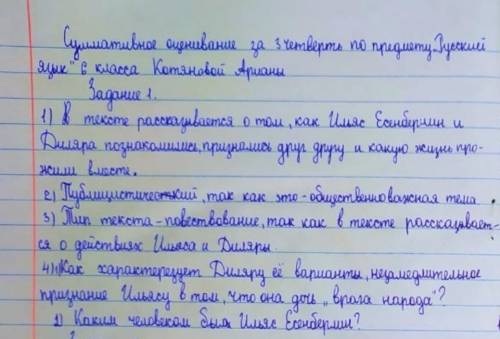 Суммативное оценивание за 3 четверть по предмету „Русский
язык" 6 класса Котяновой Арианы
Задание 1.
1) В тексте рассказывается о том, как Ильяс Есенберлин и
Диляра познакомились, признались друг другу и какую жизнь про-
жили вместе.
2) Публицистический, так как это - общественноважная тема.
3) Тип текста - повествование, так как в тексте рассказывает-
ся о действиях Ильяса и Диляры.
4) Как характерезует Диляру её варианты, незамедлительное
признание Ильясу в том, что она дочь „врага народа"?
1) Каким человеком был Ильяс Есенберлин?